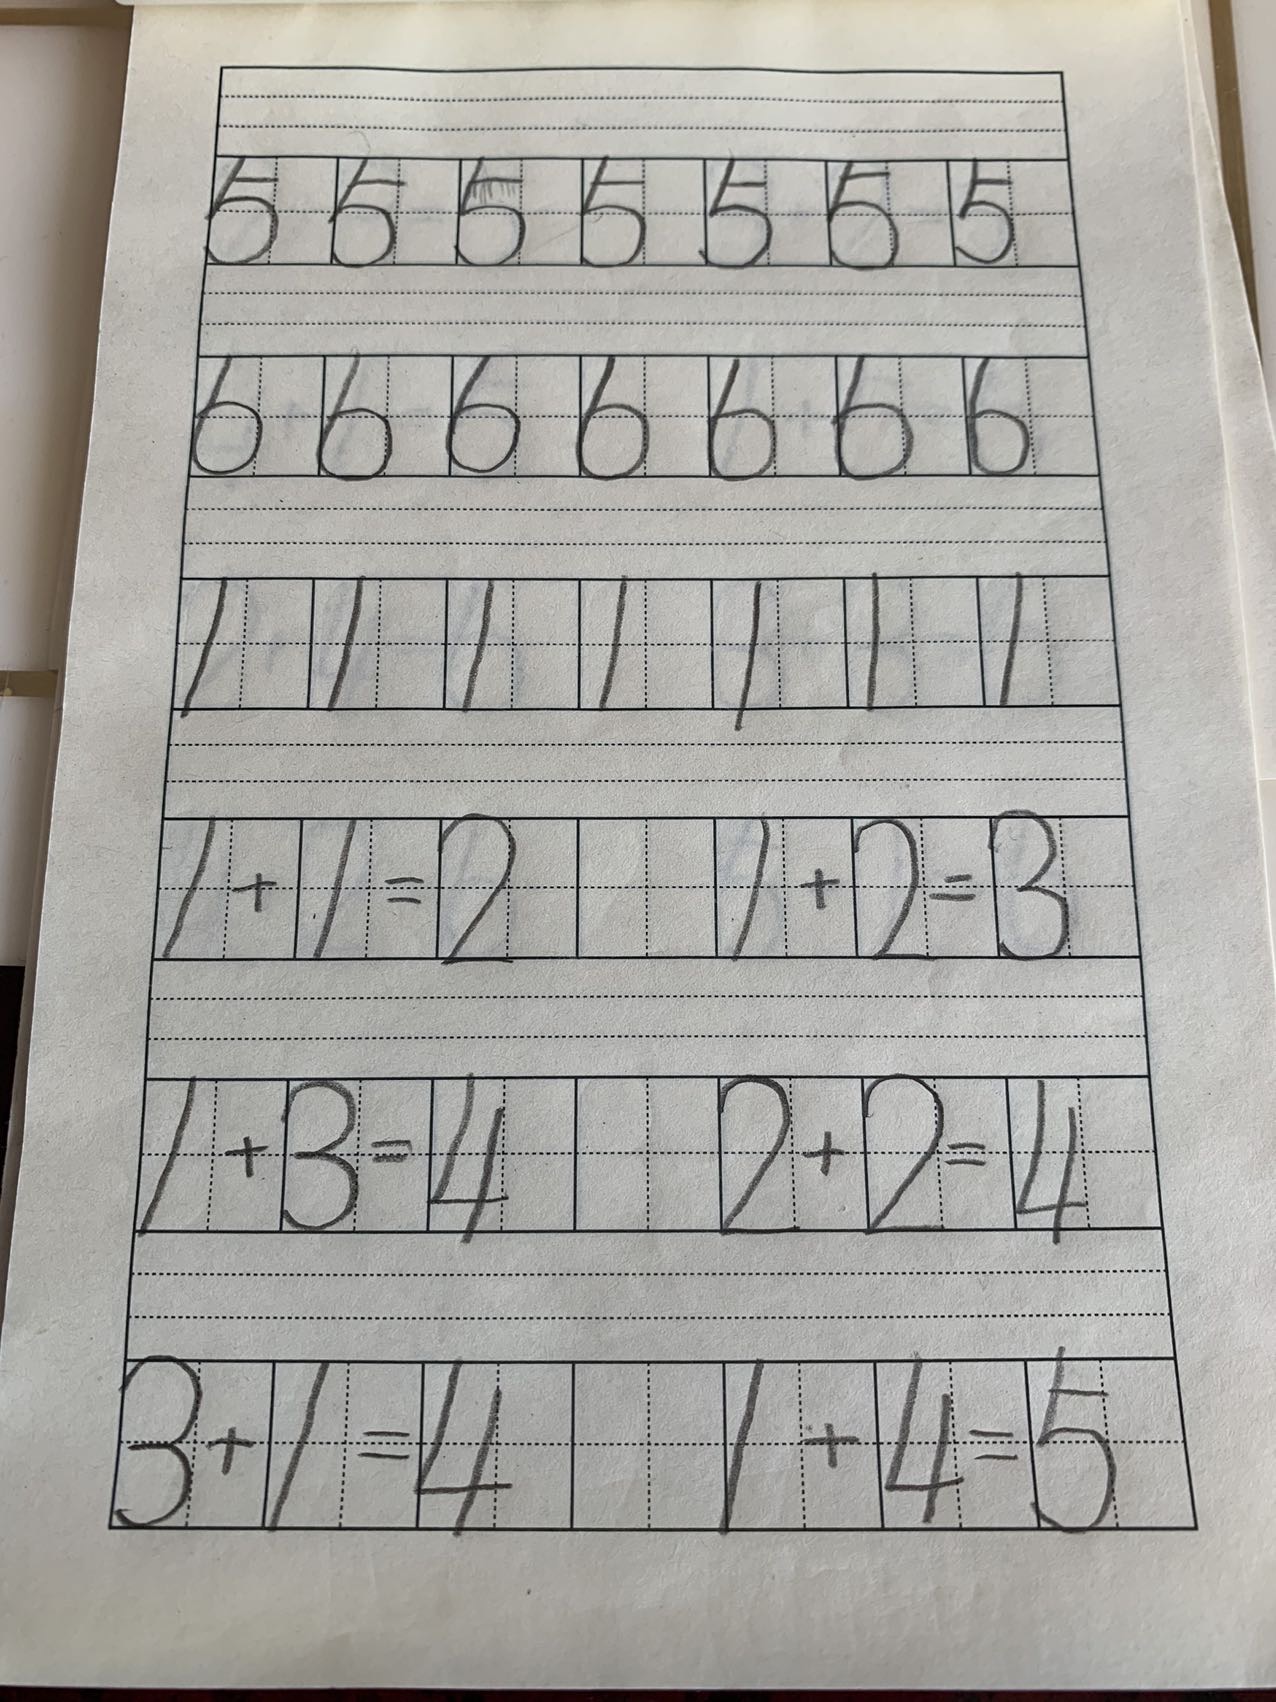 5 5 5 5 5 5 5
6 6 6 6 6 6 6
1 1 1 1 1 1 1
1+1=2 1+2=3
1+3=4 2+2=4
3+1=4 1+4=5